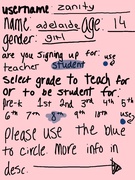 username: zanity
name: adelaide age: 14
gender: girl
are you signing up for: use
teacher student
select grade to teach for
or to be student for:
pre-k 1st 2nd 3rd 4th 5th
6th 7th 8th 9th 18th use
Please use the blue
to circle. more info in
desc.